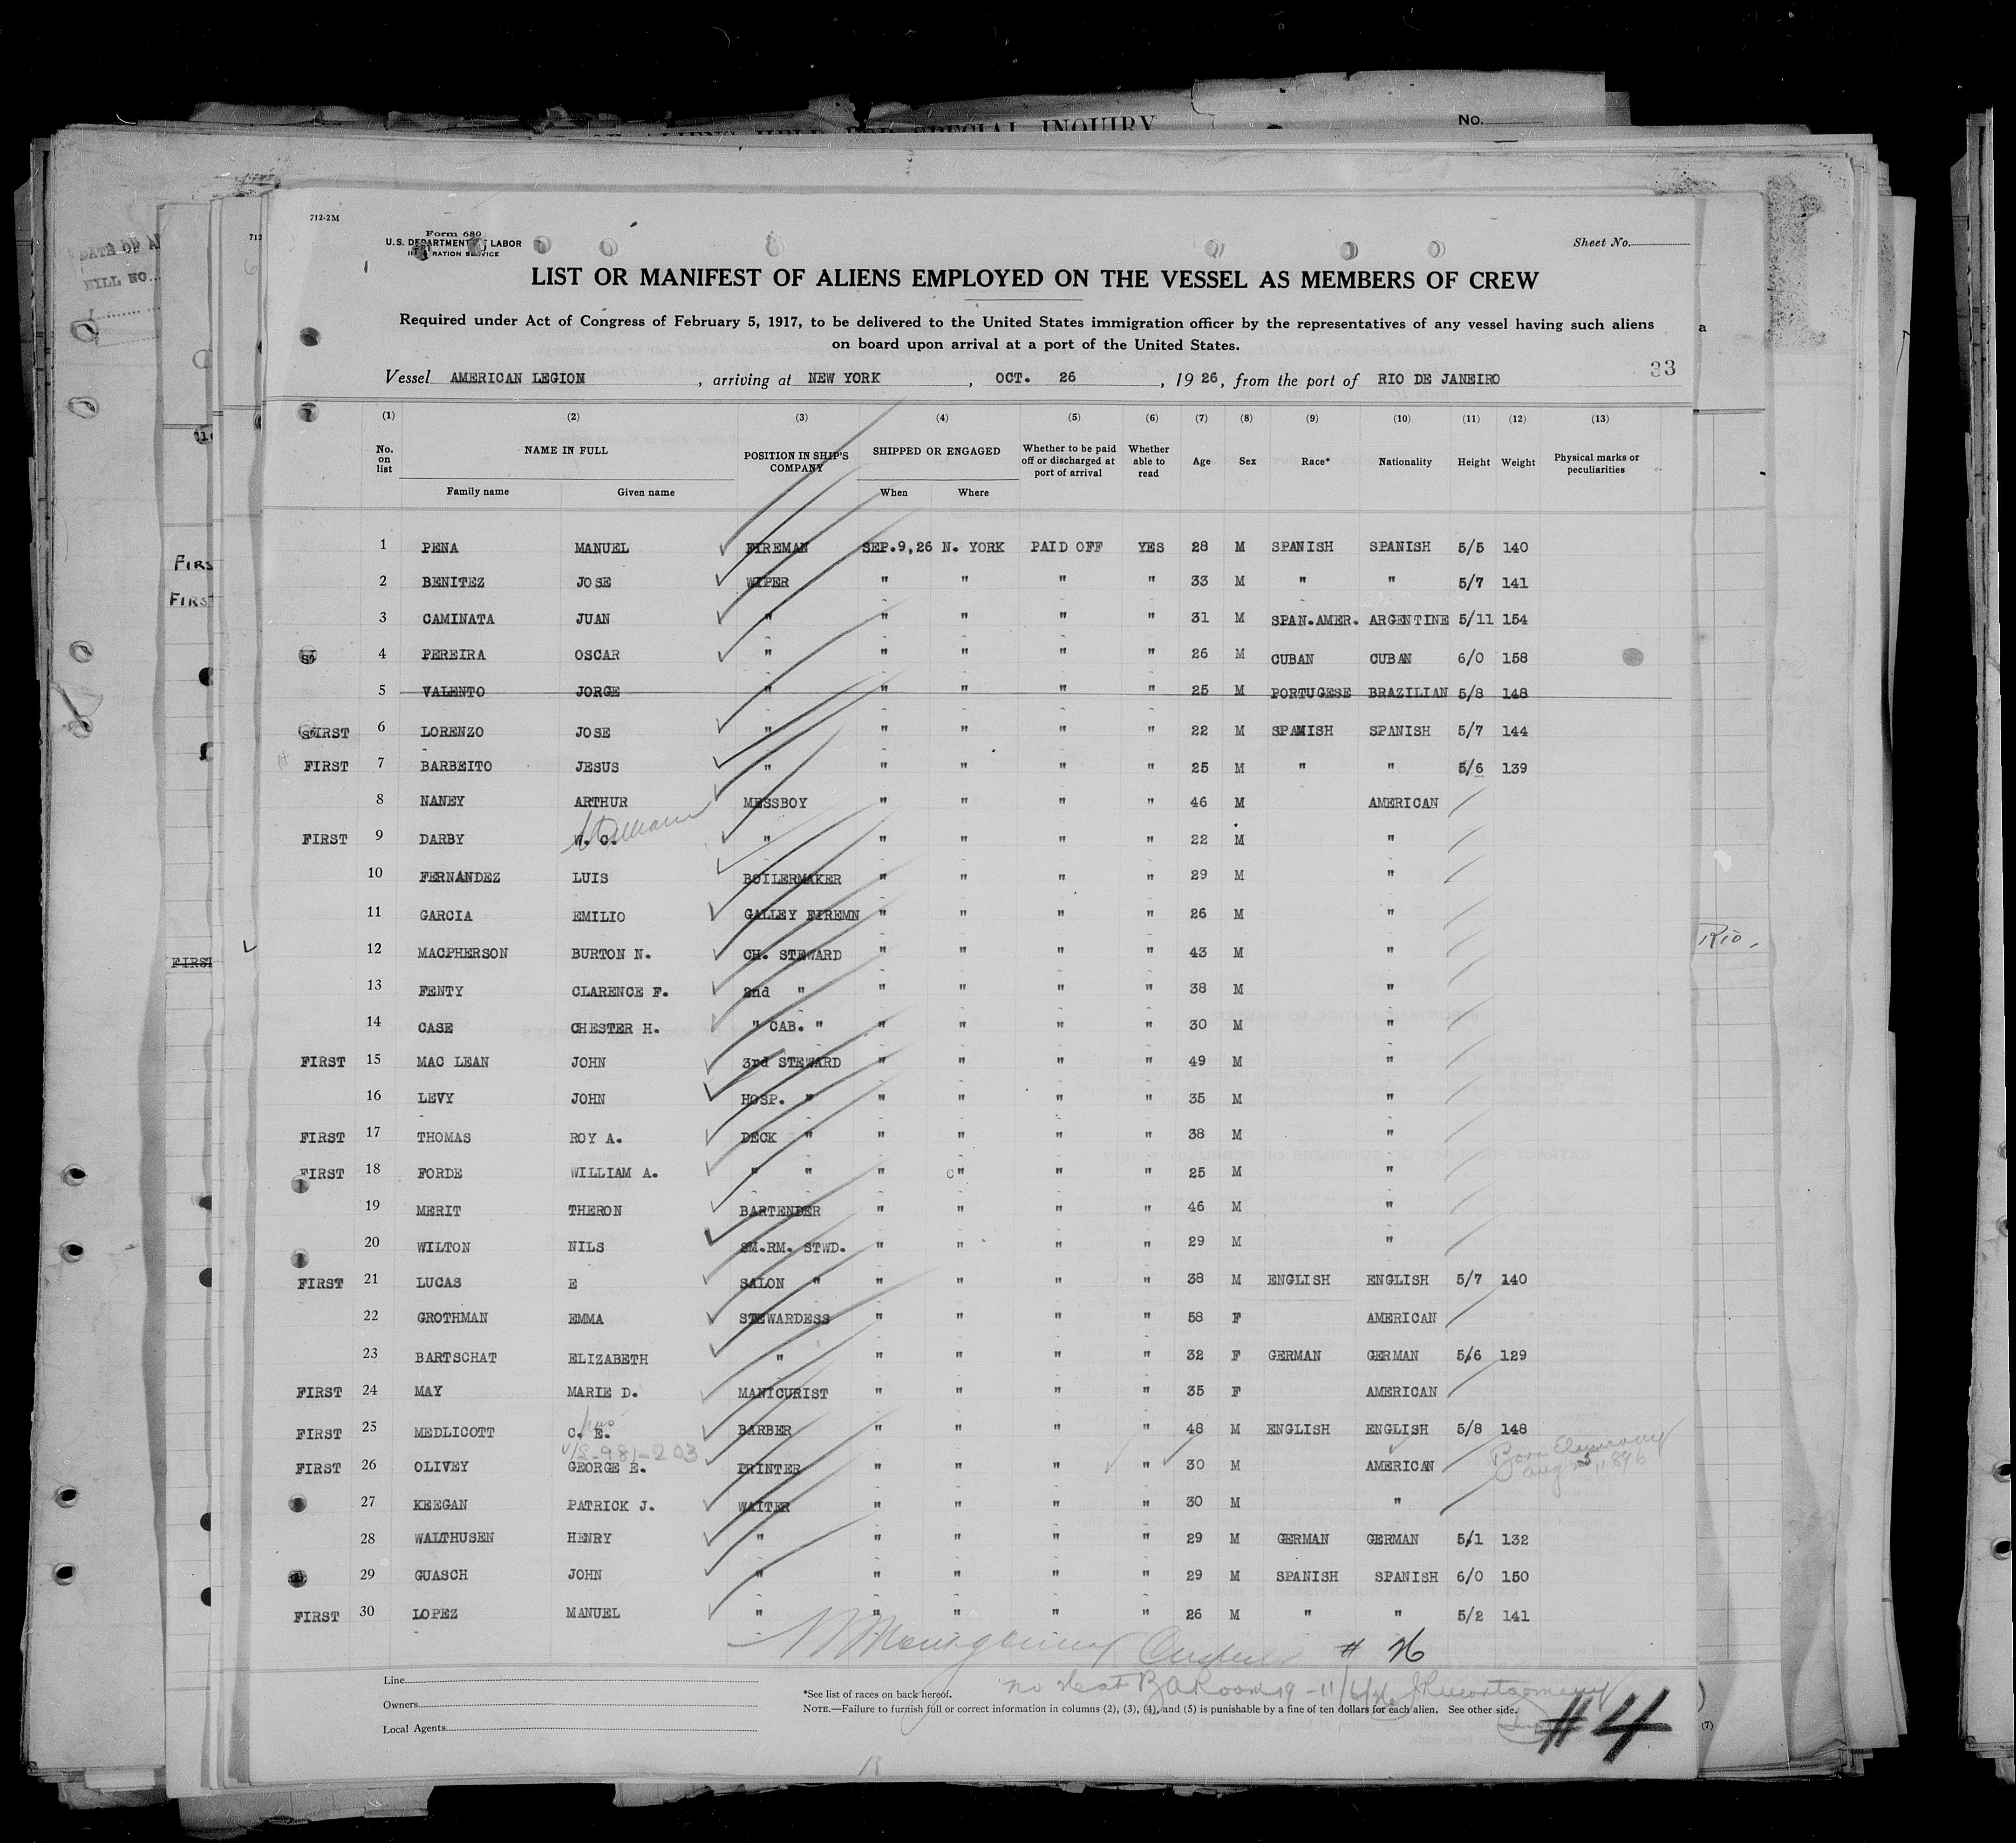 OF ALIENS HELD FOR SPECIAL INQUIRY
No.
712-2M
Form 680
U.S. DEPARTMENT OF LABOR
Sheet No.
LIST OR MANIFEST OF ALIENS EMPLOYED ON THE VESSEL AS MEMBERS OF CREW
Required under Act of Congress of February 5, 1917, to be delivered to the United States immigration officer by the representatives of any vessel having such aliens
on board upon arrival at a port of the United States.
33
Vessel AMERICAN LEGION , arriving at NEW YORK , OCT. 26 , 19 26, from the port of RIO DE JANEIRO
(1) (2) (3) (4) (5) (6) (7) (8) (9) (10) (11) (12) (13)
No. on list NAME IN FULL Family name Given name POSITION IN SHIP'S COMPANY SHIPPED OR ENGAGED When Where Whether to be paid off or discharged at port of arrival Whether able to read Age Sex Race* Nationality Height Weight Physical marks or peculiarities
1 PENA MANUEL FIREMAN SEP.9,26 N. YORK PAID OFF YES 28 M SPANISH SPANISH 5/5 140
2 BENITEZ JOSE WIPER " " " " 33 M " " 5/7 141
3 CAMINATA JUAN " " " " " 31 M SPAN.AMER. ARGENTINE 5/11 154
4 PEREIRA OSCAR " " " " " 26 M CUBAN CUBAN 6/0 158
5 VALENTO JORGE " " " " " 25 M PORTUGESE BRAZILIAN 5/8 148
FIRST 6 LORENZO JOSE " " " " " 22 M SPANISH SPANISH 5/7 144
FIRST 7 BARBEITO JESUS " " " " " 25 M " " 5/6 139
8 NANEY ARTHUR MESSBOY " " " " 46 M AMERICAN
William
FIRST 9 DARBY W. C. " " " " " 22 M "
10 FERNANDEZ LUIS BOILERMAKER " " " " 29 M "
11 GARCIA EMILIO GALLEY FIREMN " " " " 26 M "
12 MACPHERSON BURTON N. CH. STEWARD " " " " 43 M "
13 FENTY CLARENCE F. 2nd " " " " " 38 M "
14 CASE CHESTER H. " CAB. " " " " " 30 M "
FIRST 15 MAC LEAN JOHN 3rd STEWARD " " " " 49 M "
16 LEVY JOHN HOSP. " " " " " 35 M "
FIRST 17 THOMAS ROY A. DECK " " " " " 38 M "
FIRST 18 FORDE WILLIAM A. " " " C" " " 25 M "
19 MERIT THERON BARTENDER " " " " 46 M "
20 WILTON NILS SM.RM. STWD. " " " " 29 M "
FIRST 21 LUCAS E SALON " " " " " 38 M ENGLISH ENGLISH 5/7 140
22 GROTHMAN EMMA STEWARDESS " " " " 58 F AMERICAN
23 BARTSCHAT ELIZABETH " " " " " 32 F GERMAN GERMAN 5/6 129
FIRST 24 MAY MARIE D. MANICURIST " " " " 35 F AMERICAN
FIRST 25 MEDLICOTT C. E. BARBER " " " " 48 M ENGLISH ENGLISH 5/8 148
FIRST 26 OLIVEY GEORGE E. PRINTER " " " " 30 M AMERICAN
27 KEEGAN PATRICK J. WAITER " " " " 30 M "
28 WALTHUSEN HENRY " " " " " 29 M GERMAN GERMAN 5/1 132
29 GUASCH JOHN " " " " " 29 M SPANISH SPANISH 6/0 150
FIRST 30 LOPEZ MANUEL " " " " " 26 M " " 5/2 141
# 26
Line
Owners
Local Agents
*See list of races on back hereof.
NOTE.—Failure to furnish full or correct information in columns (2), (3), (4), and (5) is punishable by a fine of ten dollars for each alien. See other side.
#4
FIRST
Rio,
(7)